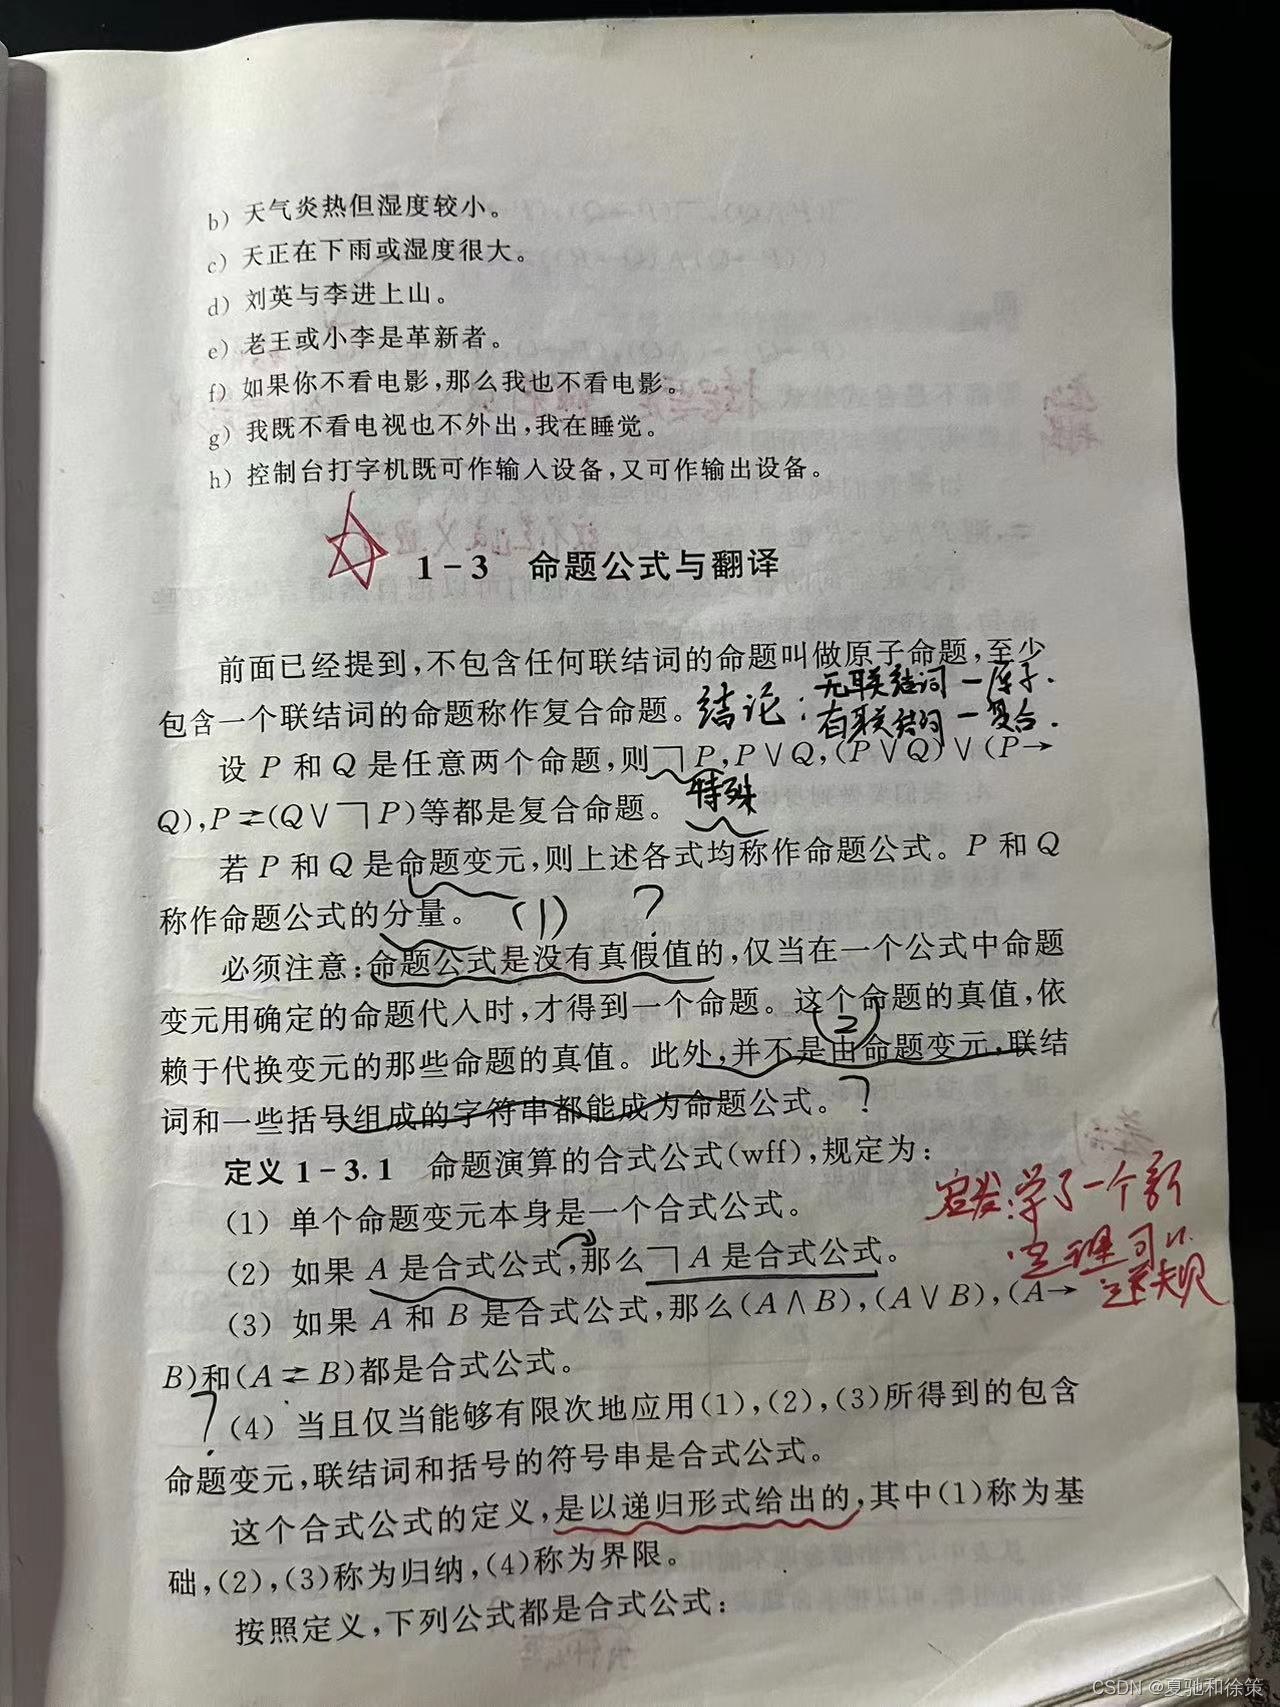 b) 天气炎热但湿度较小。
c) 天正在下雨或湿度很大。
d) 刘英与李进上山。
e) 老王或小李是革新者。
f) 如果你不看电影,那么我也不看电影。
g) 我既不看电视也不外出,我在睡觉。
h) 控制台打字机既可作输入设备,又可作输出设备。
1-3 命题公式与翻译
前面已经提到,不包含任何联结词的命题叫做原子命题,至少
包含一个联结词的命题称作复合命题。
结论:无联结词一原子.
有联结词一复合.
设 P 和 Q 是任意两个命题,则￢P,P∨Q,(P∨Q)∨(P→
Q),P⇄(Q∨￢P)等都是复合命题。
特殊
若 P 和 Q 是命题变元,则上述各式均称作命题公式。P 和 Q
称作命题公式的分量。
(1) ?
必须注意:命题公式是没有真假值的,仅当在一个公式中命题
变元用确定的命题代入时,才得到一个命题。这个命题的真值,依
2
赖于代换变元的那些命题的真值。此外,并不是由命题变元,联结
词和一些括号组成的字符串都能成为命题公式。?
定义 1-3.1 命题演算的合式公式(wff),规定为:
(1) 单个命题变元本身是一个合式公式。
启发:学了一个新
定理可以
(2) 如果 A 是合式公式,那么￢A 是合式公式。
(3) 如果 A 和 B 是合式公式,那么(A∧B),(A∨B),(A→
B)和(A⇄B)都是合式公式。
?
(4) 当且仅当能够有限次地应用(1),(2),(3)所得到的包含
命题变元,联结词和括号的符号串是合式公式。
这个合式公式的定义,是以递归形式给出的,其中(1)称为基
础,(2),(3)称为归纳,(4)称为界限。
按照定义,下列公式都是合式公式:
CSDN @夏驰和徐策